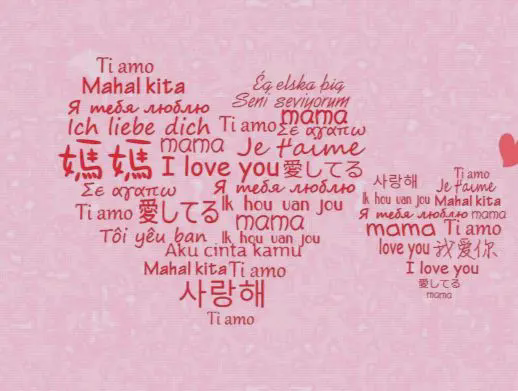 Ti amo
Mahal kita
Я тебя люблю
Ich liebe dich
Ég elska þig
Seni seviyorum
mama
Ti amo
Σε αγαπω
mama
Je t'aime
媽媽
I love you
愛してる
Σε αγαπω
Я тебя люблю
Ti amo
愛してる
Ik hou van jou
mama
Tôi yêu ban
Ik hou van jou
Aku cinta kamu
Mahal kita
Ti amo
사랑해
Ti amo
Ti amo
사랑해
Je t'aime
Ik hou van jou
Mahal kita
Я тебя люблю
mama
mama
Ti amo
love you
我愛你
I love you
愛してる
mama